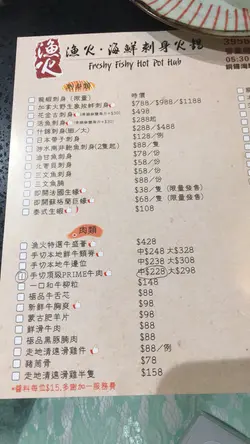 漁火
漁火·海鮮刺身火鍋
Freshy Fishy Hot Pot Hub
刺身類
龍蝦刺身 (限量) 特價
加拿大野生象拔蚌刺身 $788/$988/$1188
花金古刺身 $498
活魚刺身 $288起
什錦刺身(細/大) $288/$488
日本帶子刺身 $128/例
油甘魚刺身 $88
北寄貝刺身 $88
三文魚刺身 $88
三文魚腩 $88
即開法國生蠔 $38/隻 (限量發售)
即開蘇格蘭巨蠔 $68/隻 (限量發售)
泰式生蝦 $108
肉類
漁火特選牛盛薈 $428
手切本地鮮牛頸脊 中$248大$328
手切本地牛邊位 中$238大$308
手切頂級PRIME牛肉 中$228大$298
一口和牛柳粒 $148
極品牛舌芯 $88
新鮮牛胸爽 $98
蒙古肥羊片 $88
鮮滑牛肉 $88
極品黑豚腩肉 $88
走地清遠滑雞件 $88/例
豬潤膏 $78
走地清遠滑雞半隻 $158
*醬料每位$15,多謝加一服務費
05:30